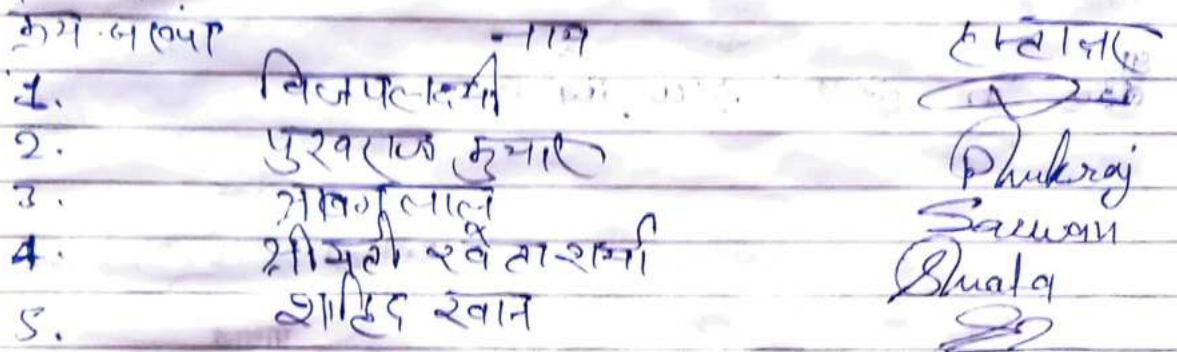 क्रम संख्या नाम हस्ताक्षर
1. विजयलक्ष्मी
2. पुखराज कुमार Phukraj
3. श्रावण लाल Sarwan
4. श्रीमती श्वेता शर्मा Shwata
5. शाहिद खान